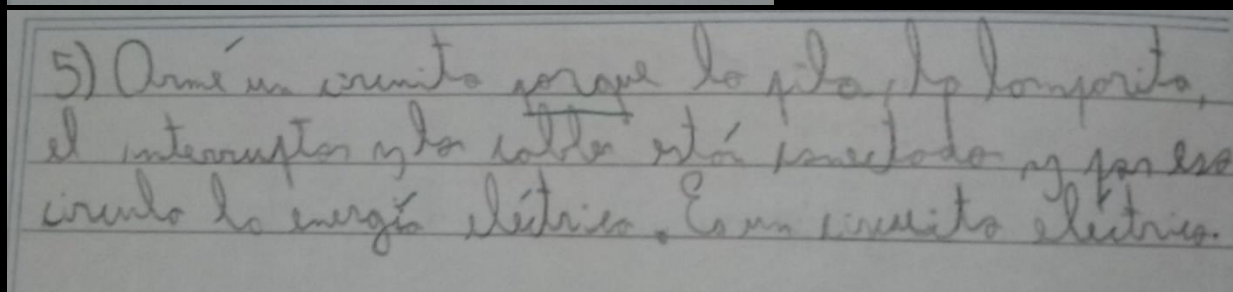 5) Armé un circuito porque la pila, la lamparita,
el interruptor y los cables está conectado y por eso
circula la energía eléctrica. Es un circuito eléctrico.